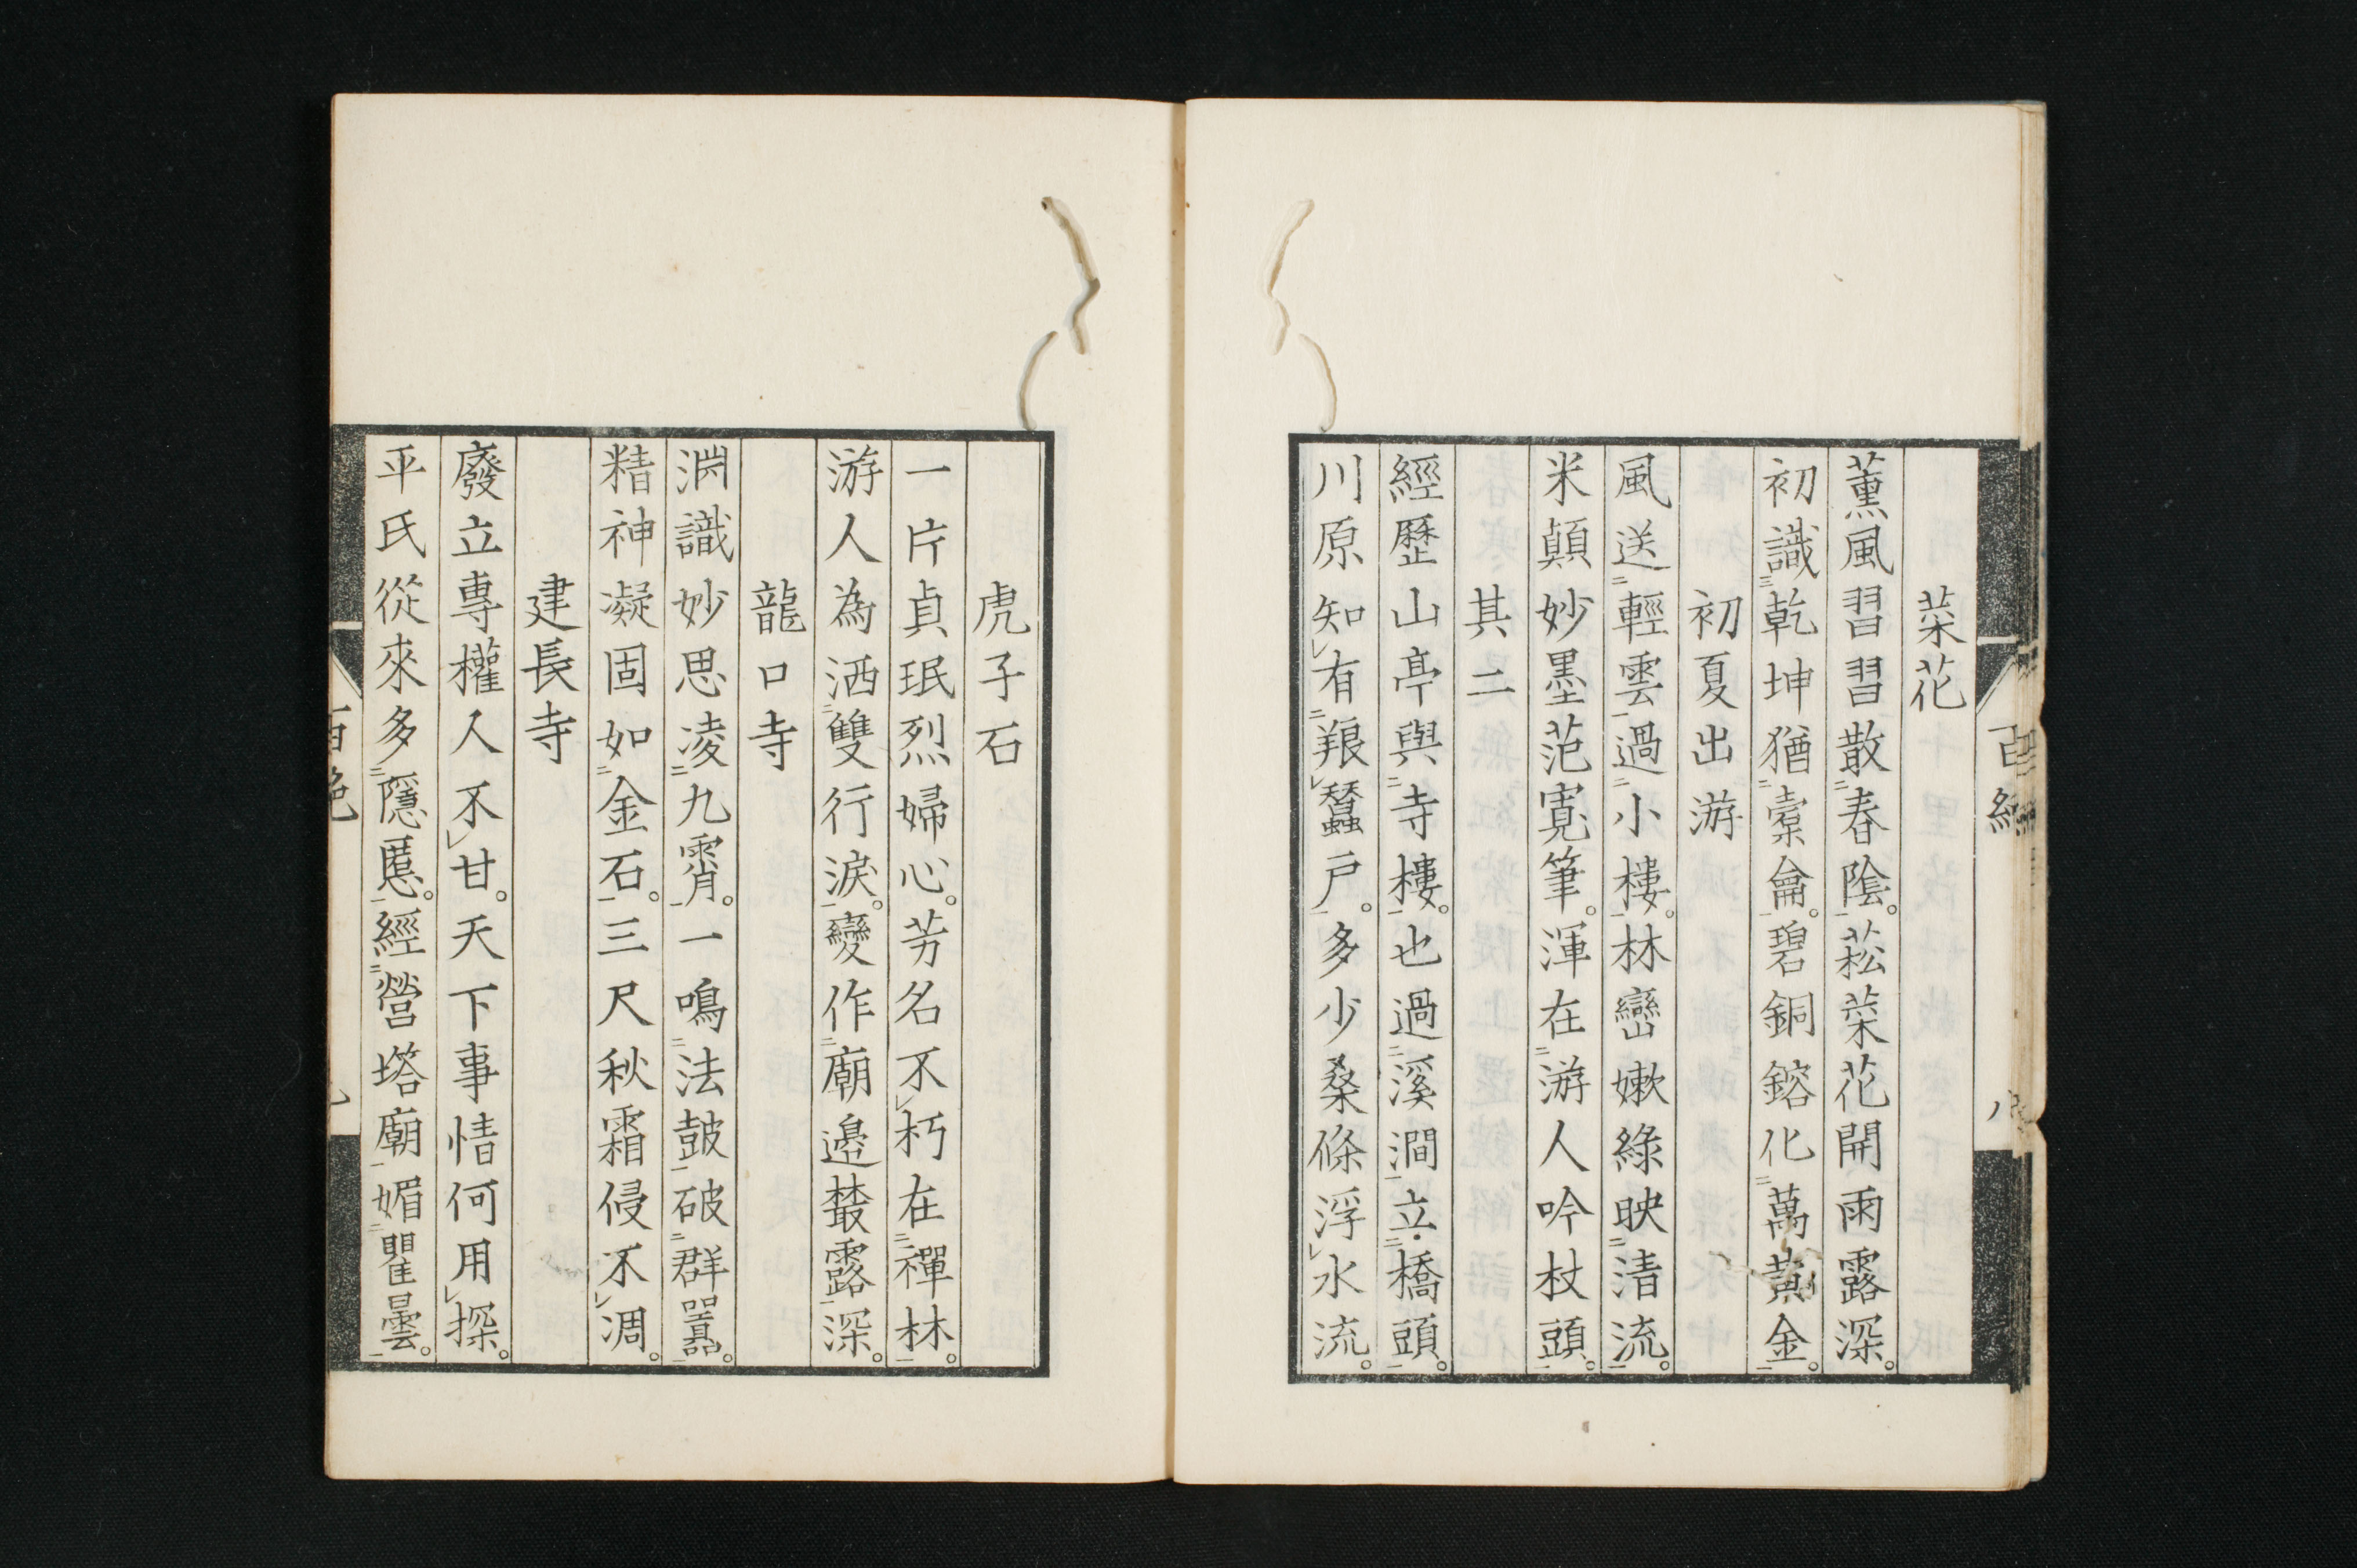 菜花
薫風習習散春陰。菘菜花開雨露深。
初識乾坤猶橐龠。碧銅鎔化萬黄金。
初夏出游
風送輕雲過小樓。林巒嫩綠映清流。
米顛妙墨范寛筆。渾在游人吟杖頭。
其二
經歷山亭與寺樓。也過溪澗立橋頭。
川原知有狼蠶戸。多少桑條浮水流。
百絶
八
虎子石
一片貞珉烈婦心。芳名不朽在禪林。
游人為洒雙行淚。變作廟邊叢露深。
龍口寺
淵識妙思凌九霄。一鳴法鼓破群嚚。
精神凝固如金石。三尺秋霜侵不凋。
建長寺
廢立專權人不甘。天下事情何用探。
平氏從來多隱慝。經營塔廟媚瞿曇。
百絶